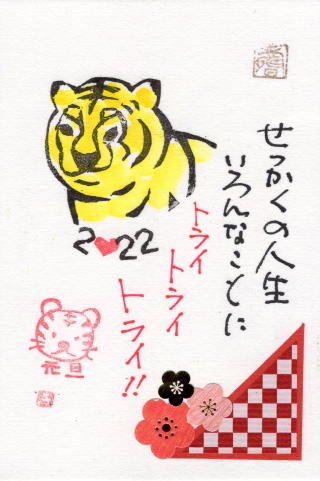 せっかくの人生
いろんなことに
トライ
トライ
トライ!!
2❤22
元旦